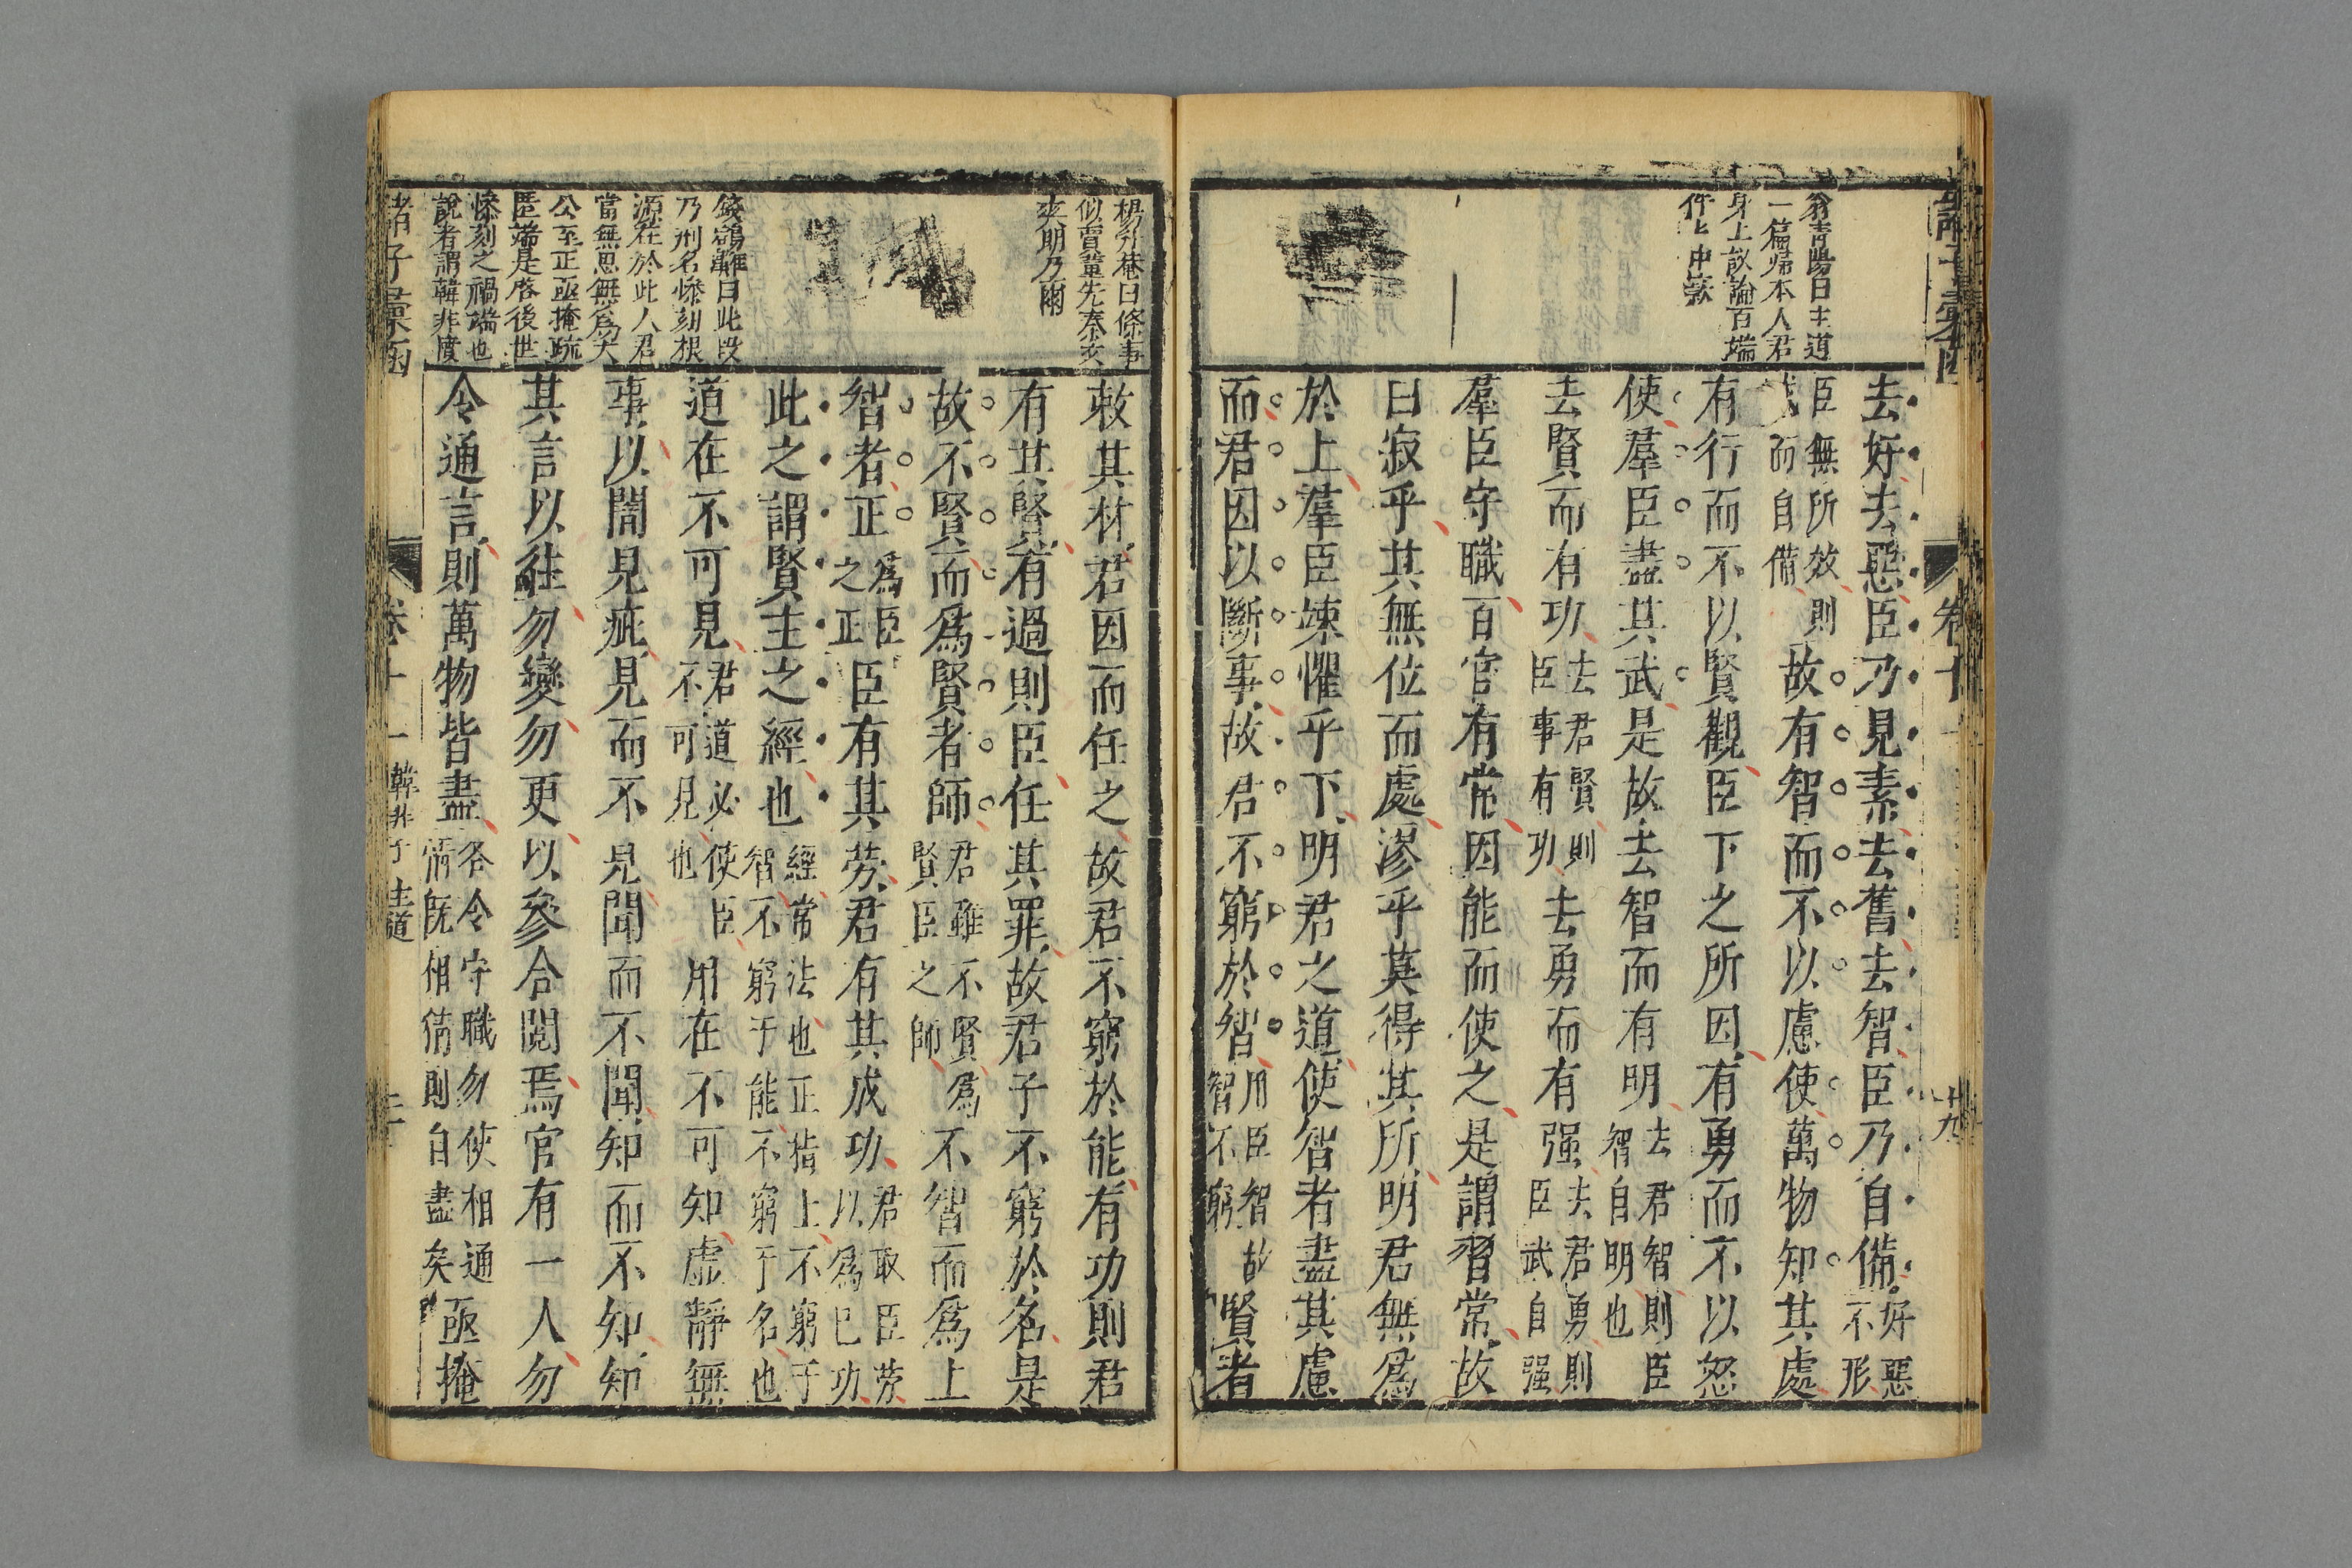 翁青陽曰主道
一篇歸本人君
身上議論百端
件件中窾
去好去惡臣乃見素去舊去智臣乃自備好惡不形
臣無所效則戒而自備故有智而不以慮使萬物知其處
有行而不以賢觀臣下之所因有勇而不以怒
使羣臣盡其武是故去智而有明去君智則臣智自明也
去賢而有功去君賢則臣事有功去勇而有强去君勇則臣武自强
羣臣守職百官有常因能而使之是謂習常故
曰寂乎其無位而處漻乎莫得其所明君無爲
於上羣臣竦懼乎下明君之道使智者盡其慮
而君因以斷事故君不窮於智用臣智故智不窮賢者
卷十一
十九
楊升菴曰條事
似賈董先秦文
夾期乃爾
敕其材君因而任之故君不窮於能有功則君
有其賢有過則臣任其罪故君子不窮於名是
故不賢而爲賢者師君雖不賢爲賢臣之師不智而爲上
智者正爲臣之正臣有其勞君有其成功君取臣勞以爲已功
此之謂賢主之經也經常法也正指上不窮于智不窮于能不窮于名也
道在不可見君道必使臣不可見也用在不可知虛靜無
事以闇見疵見而不見聞而不聞知而不知知
其言以往勿變勿更以參合閱焉官有一人勿
令通言則萬物皆盡各令守職勿使相通情既相猜則自盡矣函掩
錢鶴灘曰此段
乃刑名慘刻根
源在於此人君
當無思無爲大
公至正函掩疏
匿端是啓後世
慘刻之禍端也
說者謂韓非度
諸子彙函
卷十一
韓非子
主道
二十